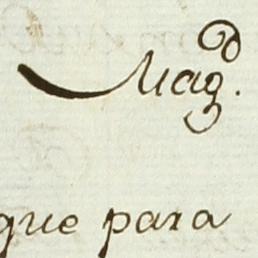 Mag.d
que para